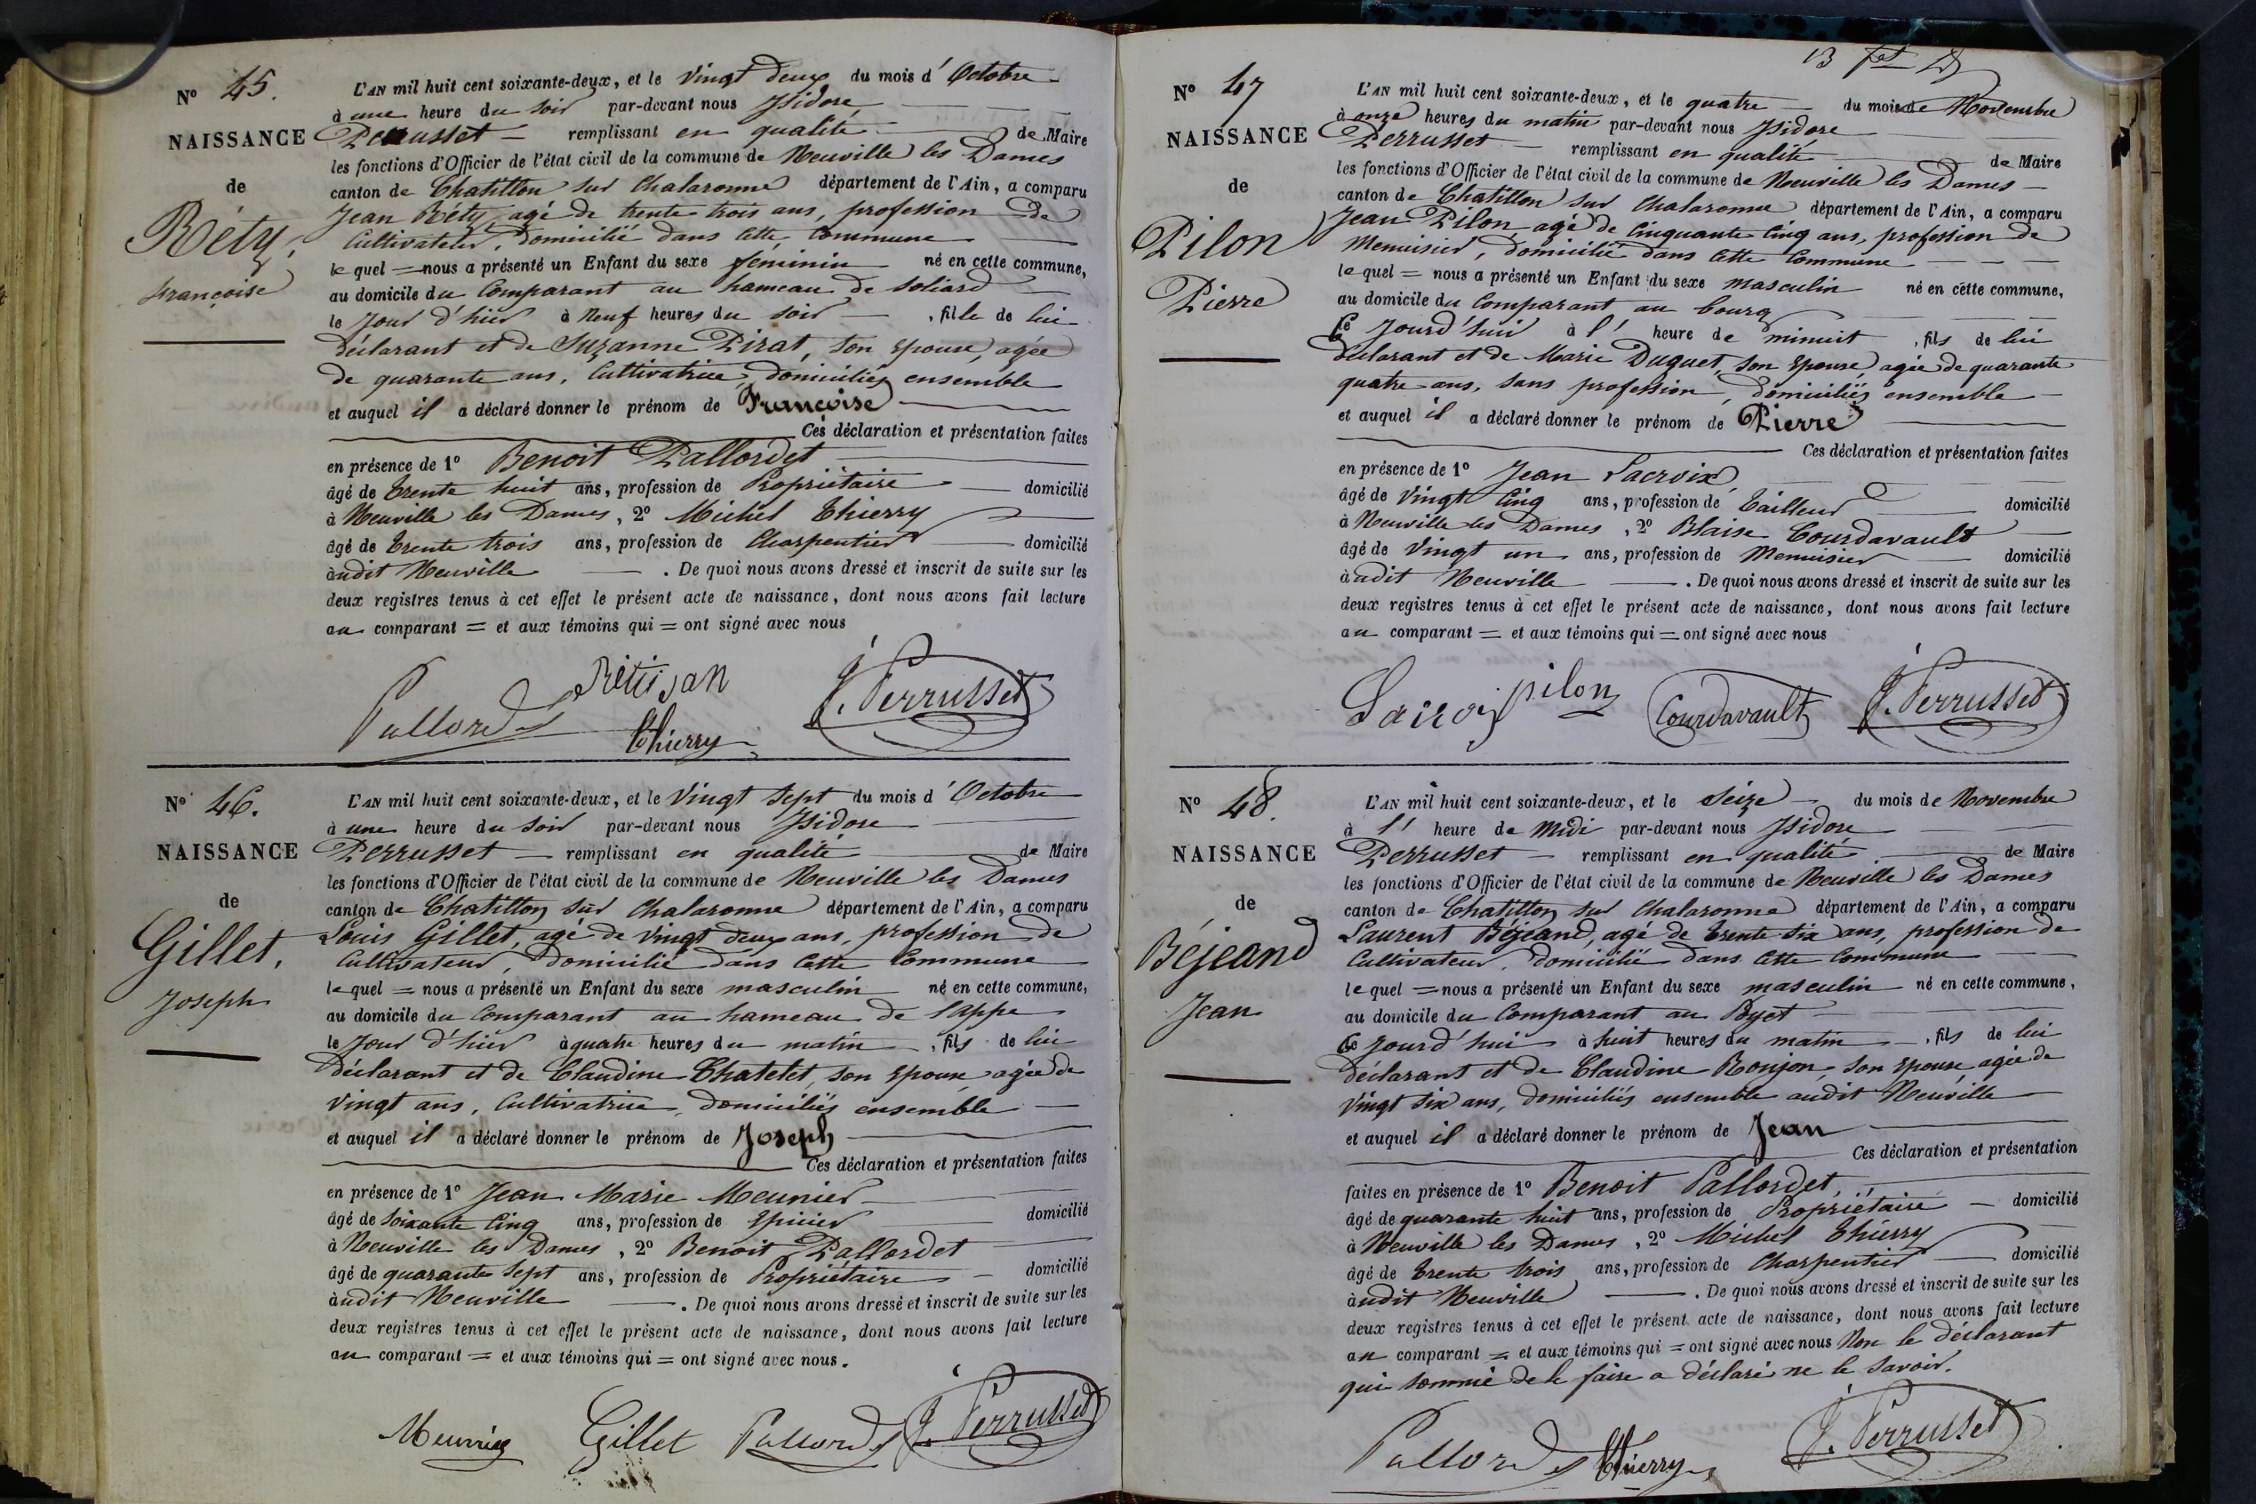 N° 45.
NAISSANCE
de
Réty,
françoise
L'AN mil huit cent soixante-deux, et le Vingt deux du mois d' Octobre
à une heure du Soir par-devant nous Isidore
Perrusset remplissant en qualité de Maire
les fonctions d'Officier de l'état civil de la commune de Neuville les Dames
canton de Chatillon sur Chalaronne département de l'Ain, a comparu
Jean Réty, agé de trente trois ans, profession de
Cultivateur, domicilié dans cette Commune
lequel = nous a présenté un Enfant du sexe féminin né en cette commune,
au domicile du Comparant au hameau de Soliard
le Jour d'hier à Neuf heures du Soir , fille de lui
déclarant et de Suzanne Pirat, son Epouse, agée
de quarante ans, Cultivatrice, domiciliés ensemble
et auquel il a déclaré donner le prénom de Françoise
Ces déclaration et présentation faites
en présence de 1° Benoit Pallordet
âgé de trente huit ans, profession de Propriétaire domicilié
à Neuville les Dames, 2° Michel Thierry
âgé de trente trois ans, profession de Charpentier domicilié
audit Neuville . De quoi nous avons dressé et inscrit de suite sur les
deux registres tenus à cet effet le présent acte de naissance, dont nous avons fait lecture
au comparant = et aux témoins qui = ont signé avec nous
Rétijan
Pallordet Thierry J. Perrusset
N° 46.
NAISSANCE
de
Gillet,
Joseph
L'AN mil huit cent soixante-deux, et le Vingt Sept du mois d' Octobre
à une heure du Soir par-devant nous Isidore
Perrusset remplissant en qualité de Maire
les fonctions d'Officier de l'état civil de la commune de Neuville les Dames
canton de Chatillon sur Chalaronne département de l'Ain, a comparu
Louis Gillet, agé de Vingt deux ans, profession de
Cultivateur, domicilié dans cette Commune
lequel = nous a présenté un Enfant du sexe masculin né en cette commune,
au domicile du Comparant au hameau de Sappe
le Jour d'hier à quatre heures du matin , fils de lui
déclarant et de Claudine Chatelet, son Epouse agée de
Vingt ans, Cultivatrice, domiciliés ensemble
et auquel il a déclaré donner le prénom de Joseph
Ces déclaration et présentation faites
en présence de 1° Jean Marie Meunier
âgé de Soixante Cinq ans, profession de Epicier domicilié
à Neuville les Dames, 2° Benoit Pallordet
âgé de quarante Sept ans, profession de Propriétaire domicilié
audit Neuville . De quoi nous avons dressé et inscrit de suite sur les
deux registres tenus à cet effet le présent acte de naissance, dont nous avons fait lecture
au comparant = et aux témoins qui = ont signé avec nous.
Meunier Gillet Pallordet J. Perrusset
13
N° 47
NAISSANCE
de
Pilon
Pierre
L'AN mil huit cent soixante-deux, et le quatre du mois de Novembre
à onze heures du matin par-devant nous Isidore
Perrusset remplissant en qualité de Maire
les fonctions d'Officier de l'état civil de la commune de Neuville les Dames
canton de Chatillon sur Chalaronne département de l'Ain, a comparu
Jean Pilon, agé de Cinquante Cinq ans, profession de
Menuisier, domicilié dans cette Commune
lequel = nous a présenté un Enfant du sexe masculin né en cette commune,
au domicile du Comparant au bourg
Ce Jourd'hui à l' heure de minuit , fils de lui
déclarant et de Marie Duguet, son Epouse, agée de quarante
quatre ans, sans profession, domiciliés ensemble
et auquel il a déclaré donner le prénom de Pierre
Ces déclaration et présentation faites
en présence de 1° Jean Lacroix
âgé de Vingt Cinq ans, profession de Tailleur domicilié
à Neuville les Dames, 2° Blaise Courdavault
âgé de Vingt un ans, profession de Menuisier domicilié
audit Neuville . De quoi nous avons dressé et inscrit de suite sur les
deux registres tenus à cet effet le présent acte de naissance, dont nous avons fait lecture
au comparant = et aux témoins qui = ont signé avec nous
Lacroix pilon Courdavault J. Perrusset
N° 48.
NAISSANCE
de
Béjeand
Jean
L'AN mil huit cent soixante-deux, et le Seize du mois de Novembre
à l' heure de Midi par-devant nous Isidore
Perrusset remplissant en qualité de Maire
les fonctions d'Officier de l'état civil de la commune de Neuville les Dames
canton de Chatillon sur Chalaronne département de l'Ain, a comparu
Laurent Béjeand, agé de trente Six ans, profession de
Cultivateur, domicilié dans cette Commune
lequel = nous a présenté un Enfant du sexe masculin né en cette commune,
au domicile du Comparant au Poyet
Ce Jourd'hui à huit heures du matin , fils de lui
déclarant et de Claudine Ronjon, son Epouse, agée de
Vingt Six ans, domiciliés ensemble audit Neuville
et auquel il a déclaré donner le prénom de Jean
Ces déclaration et présentation
faites en présence de 1° Benoit Pallordet,
âgé de quarante huit ans, profession de Propriétaire domicilié
à Neuville les Dames, 2° Michel Thierry
âgé de trente trois ans, profession de Charpentier domicilié
audit Neuville . De quoi nous avons dressé et inscrit de suite sur les
deux registres tenus à cet effet le présent acte de naissance, dont nous avons fait lecture
au comparant = et aux témoins qui = ont signé avec nous Non le déclarant
qui sommé de le faire a déclaré ne le savoir.
Pallordet Thierry J. Perrusset